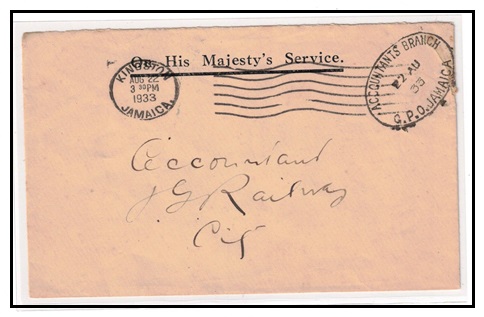 On His Majesty's Service.
KINGSTON
AUG 22
3 30 PM
1933
JAMAICA.
ACCOUNTANTS BRANCH
22 AU
33
G.P.O. JAMAICA
Accountant
JG Railway
City